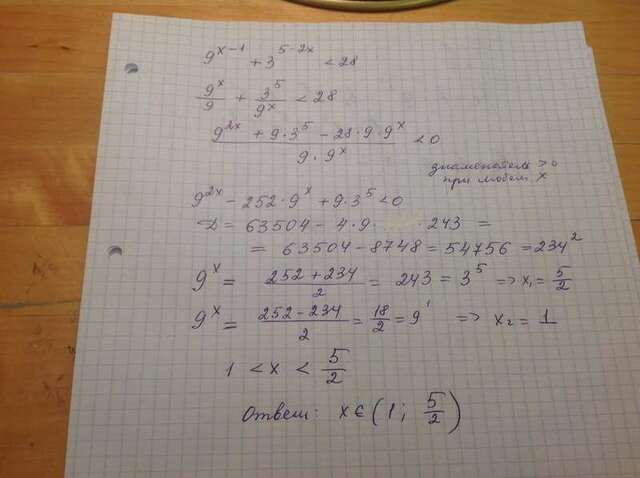 9^(x-1) + 3^(5-2x) < 28
9^x/9 + 3^5/9^x < 28
(9^(2x) + 9·3^5 - 28·9·9^x)/(9·9^x) < 0
знаменатель > 0
при любом x
9^(2x) - 252·9^x + 9·3^5 < 0
D = 63504 - 4·9· ·243 =
= 63504 - 8748 = 54756 = 234^2
9^x = (252+234)/2 = 243 = 3^5 => x₁ = 5/2
9^x = (252-234)/2 = 18/2 = 9^1 => x₂ = 1
1 < x < 5/2
Ответ: x ∈ (1; 5/2)